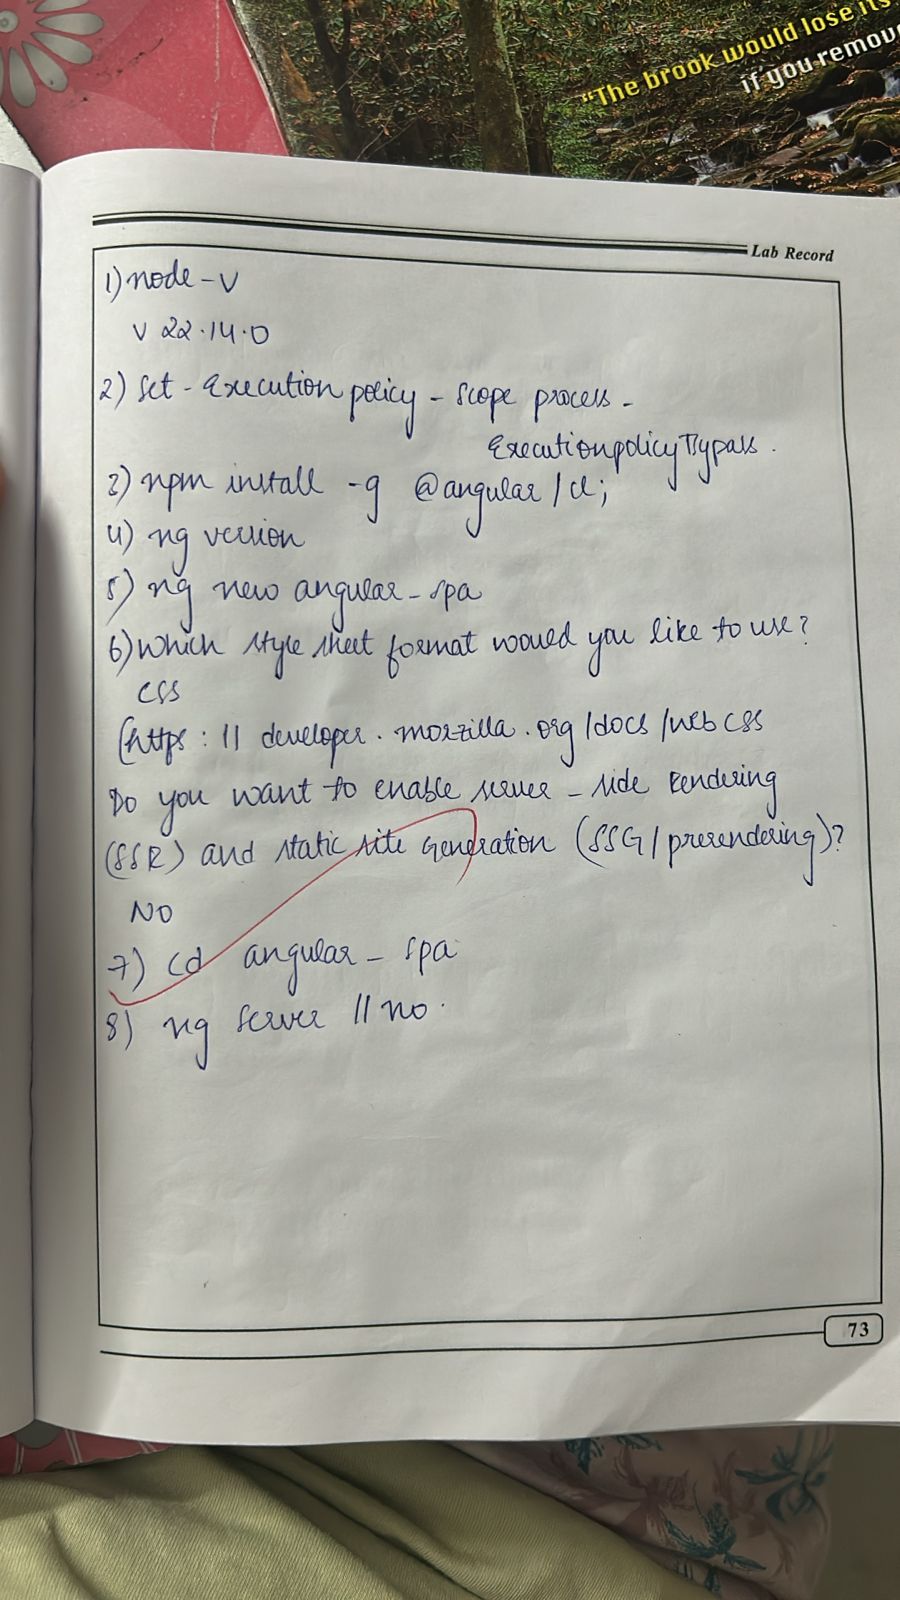 "The brook would lose its
if you remov
Lab Record
1) node -v
v 22.14.0
2) set - Execution policy - scope process -
Executionpolicy Bypass.
3) npm install -g @angular/cli;
4) ng version
5) ng new angular-spa
6) Which style sheet format would you like to use?
CSS
(https://developer.mozzilla.org/docs/web css
Do you want to enable server-side rendering
(SSR) and static site Generation (SSG/prerendering)?
NO
7) cd angular-spa
8) ng server // no.
73